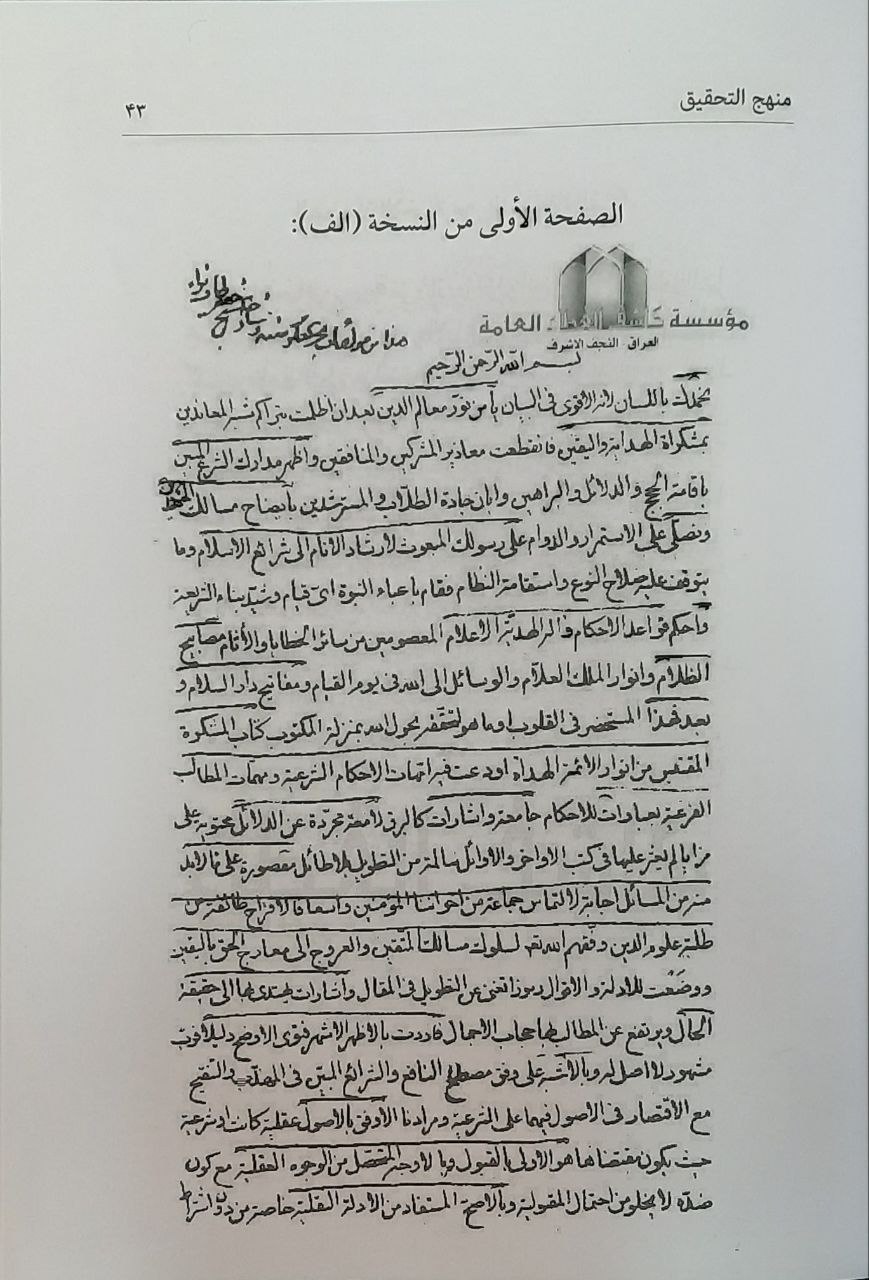 منهج التحقيق
۴۳
الصفحة الأولى من النسخة (الف):
مؤسسة كاشف الغطاء العامة
العراق - النجف الاشرف
هذا من
بسم الله الرحمن الرحيم
نحمدك باللسان لانه الاقوى في البيان يا من نور معالم الدين بعد ان اظلمت بتراكم شبه المعاندين
بمشكواة الهداية واليقين فانقطعت معاذير المشركين والمنافقين واظهر مدارك الشرع المبين
باقامة الحجج والدلائل والبراهين وابان جادة الطلاب والمسترشدين بايضاح مسالك
ونصلي على الاستمرار والدوام على رسولك المبعوث لارشاد الانام الى شرائع الاسلام وما
يتوقف عليه صلاح النوع واستقامة النظام فقام باعباء النبوة اي قيام وشيد بناء الشريعة
واحكم قواعد الاحكام وآله الهداة الاعلام المعصومين من سائر الخطايا والآثام مصابيح
الظلام وانوار الملك العلام والوسائل الى الله في يوم القيام ومفاتيح دار السلام و
بعد فهذا المستحضر في القلوب وما هو لتحققه بحول الله بمنزلة المكتوب كتاب المشكوة
المقتبس من انوار الائمة الهداة اودعت فيه امهات الاحكام الشرعية ومهمات المطالب
الفرعية بعبارات للاحكام جامعة واشارات كالبرق لامعة مجردة عن الدلائل محتوية على
مزايا لم يعثر عليها في كتب الاواخر والاوائل سالمة من التطويل بلا طائل مقصورة على ما لابد
منه من المسائل اجابة لالتماس جماعة من اخواننا المؤمنين واسعافا لاقتراح طائفة من
طلبة علوم الدين وفقهم الله تعا لسلوك مسالك المتقين والعروج الى معارج الحق باليقين
ووضعت للادلة والاقوال رموزا تغني عن التطويل في المقال واشارات يهتدى بها الى حقيقة
الحال ويرتفع عن المطالب بها حجاب الاجمال فاردت بالاظهر الاشهر فتوى الاوضح دليلا
مشهور لا اصل له وبالاشبه على وفق مصطلح النافع والشرائع المبين في المهذب والتنقيح
مع الاقتصار في الاصول فيهما على الشرعية ومرادنا الاوفق بالاصول عقلية كانت او شرعية
حيث يكون مقتضاها هو الاولى بالقبول وبالاوجه المتحصل من الوجوه العقلية مع كون
ضده لا يخلو من احتمال المقبولية وبالاصح المستفاد من الادلة النقلية خاصة من دون اشتراط